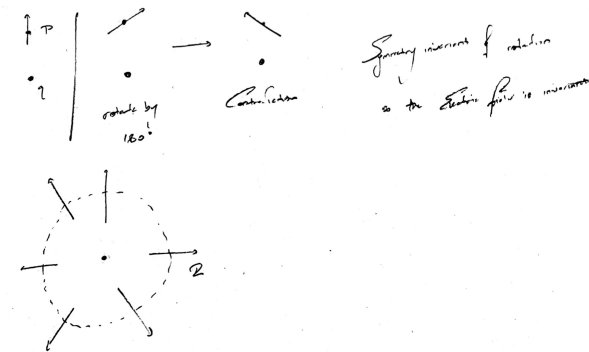 P
q
rotate by
180°
Contradiction
Symmetry invariant of rotation
so the Electric field is invariant